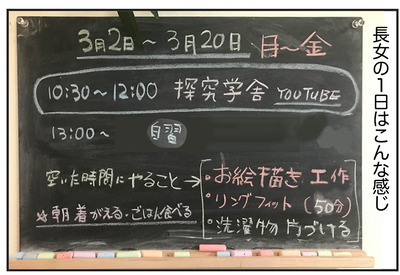 長女の1日はこんな感じ
3月2日～3月20日 月～金
10:30～12:00 探究学舎 YOUTUBE
13:00～ 自習
空いた時間にやること→
・お絵描き 工作
・リングフィット (50分)
・洗濯物 片づける
※朝 着がえる・ごはん食べる